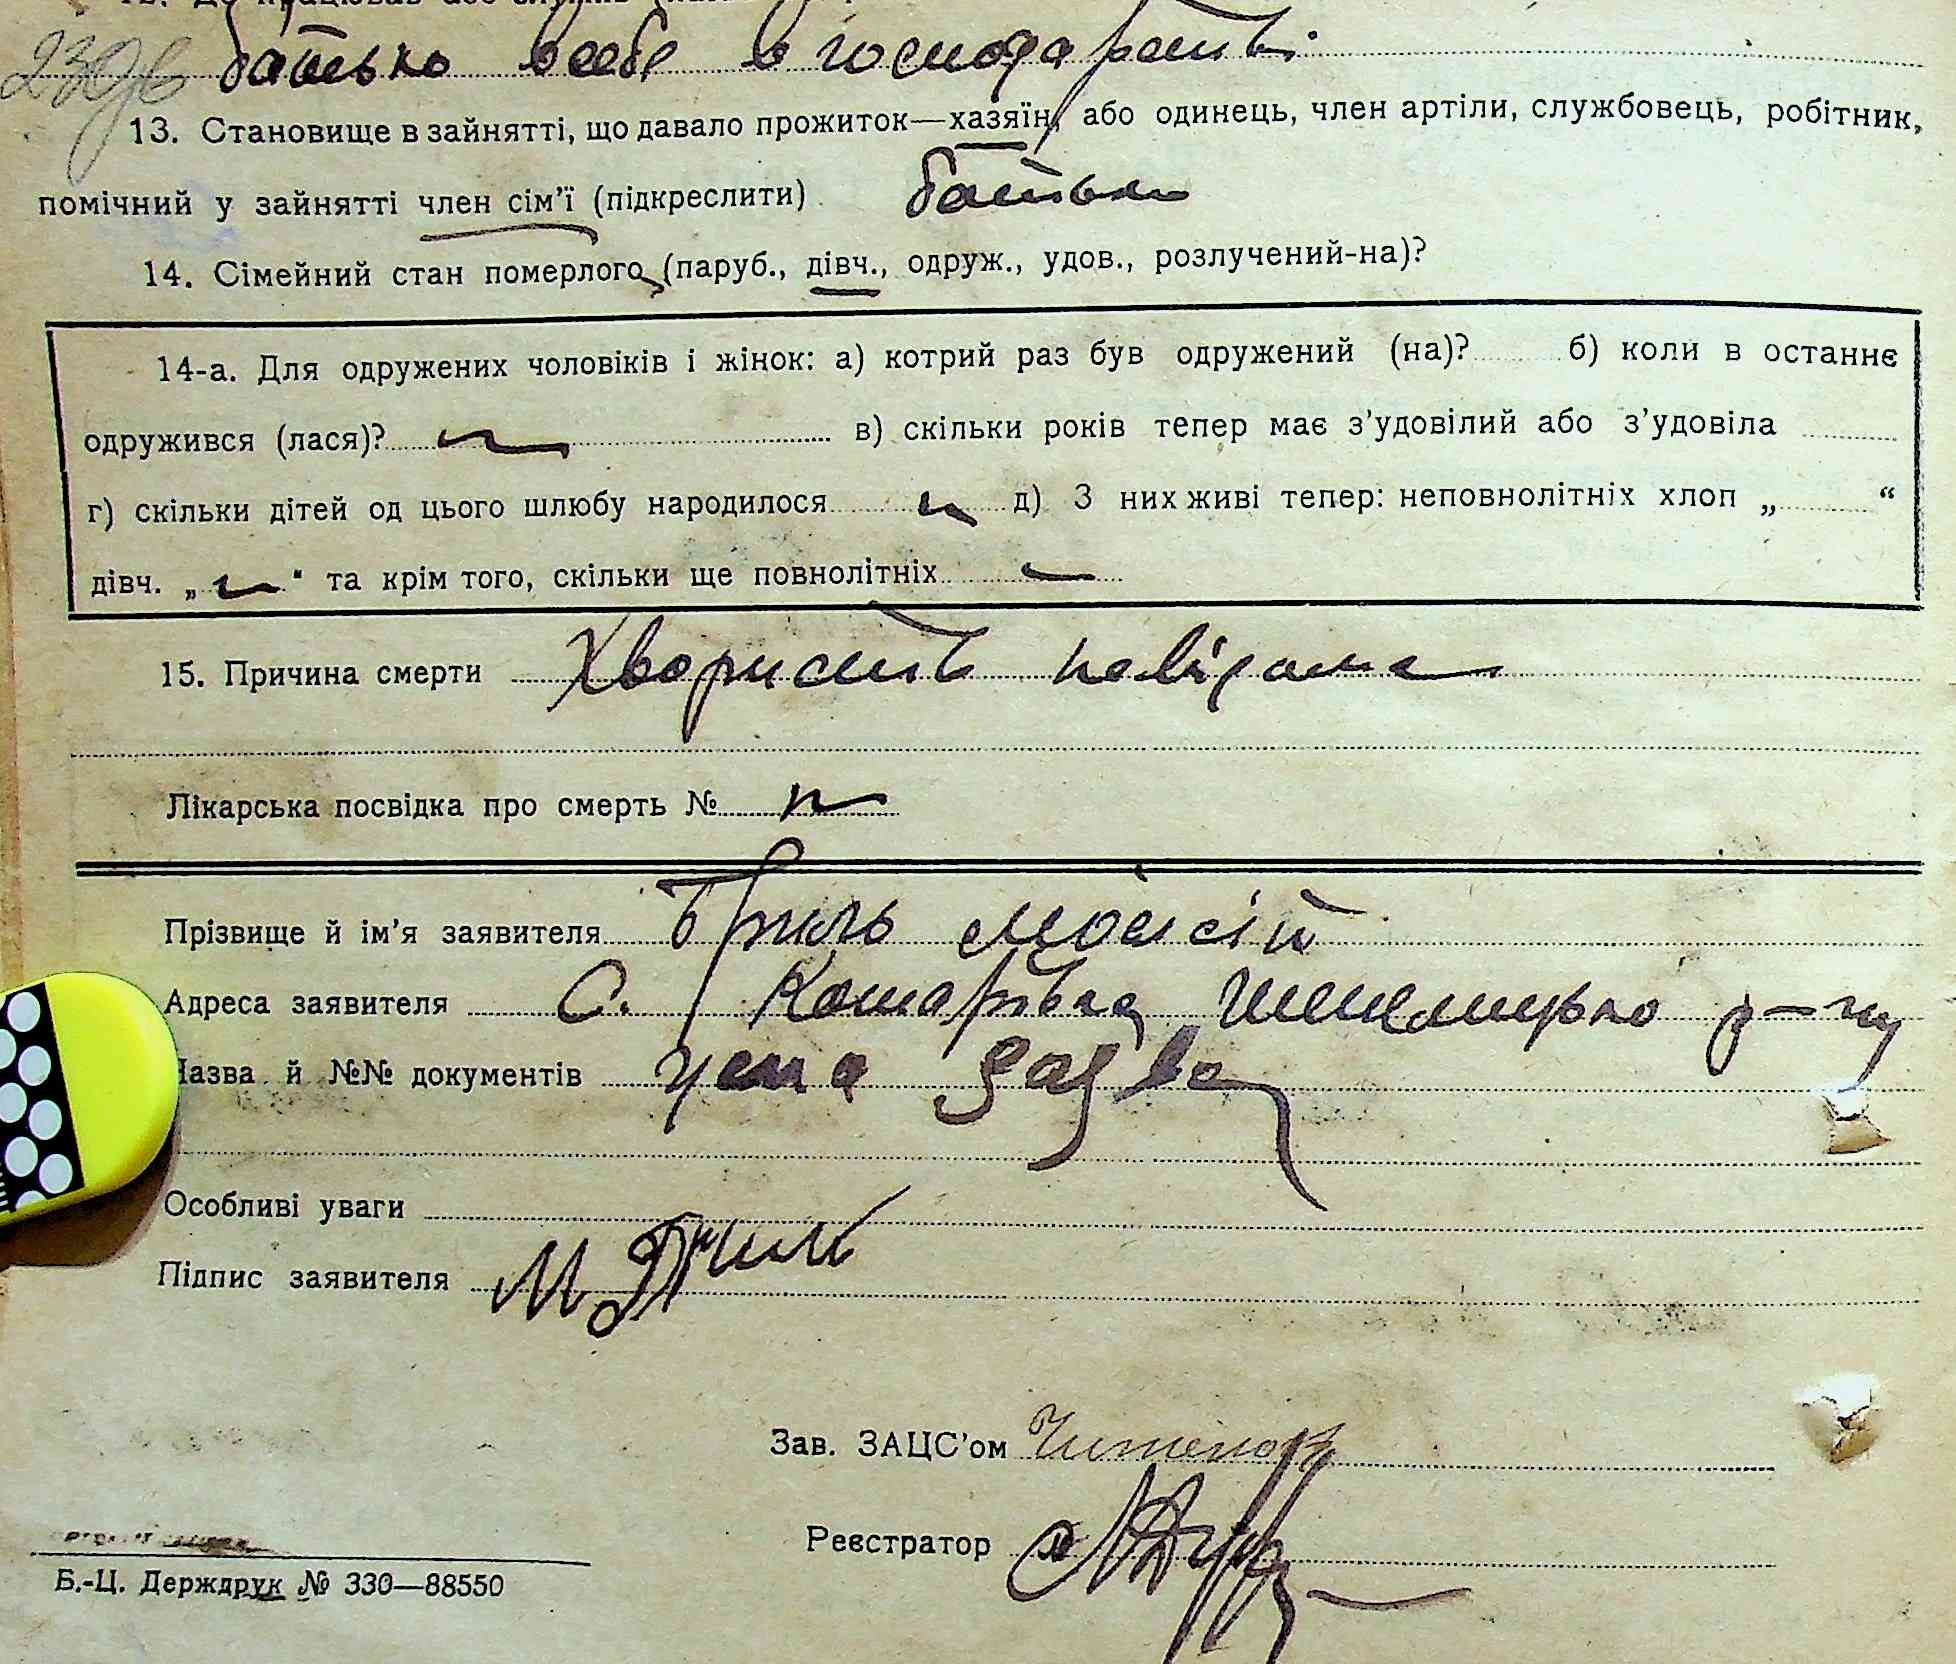 батько в себе в господарстві
13. Становище в зайнятті, що давало прожиток—хазяїн, або одинець, член артіли, службовець, робітник,
помічний у зайнятті член сім'ї (підкреслити) батько
14. Сімейний стан померлого (паруб., дівч., одруж., удов., розлучений-на)?
14-а. Для одружених чоловіків і жінок: а) котрий раз був одружений (на)? б) коли в останнє
одружився (лася)? — в) скільки років тепер має з'удовілий або з'удовіла
г) скільки дітей од цього шлюбу народилося — д) З них живі тепер: неповнолітніх хлоп „ “
дівч. „ — " та крім того, скільки ще повнолітніх —
15. Причина смерти Хвористь невідома
Лікарська посвідка про смерть № —
Прізвище й ім'я заявителя Бриль Мойсій
Адреса заявителя С. Кошарівка р-ну
Назва й №№ документів усна заява
Особливі уваги
Підпис заявителя М Бриль
Зав. ЗАЦС'ом
Реєстратор
Б.-Ц. Держдрук № 330—88550